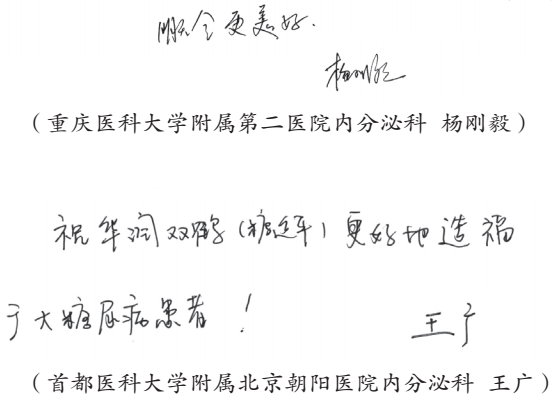 明天会更美好.
杨刚毅
（重庆医科大学附属第二医院内分泌科 杨刚毅）
祝华润双鹤（糖适平）更好地造福
于大糖尿病患者！
王广
（首都医科大学附属北京朝阳医院内分泌科 王广）